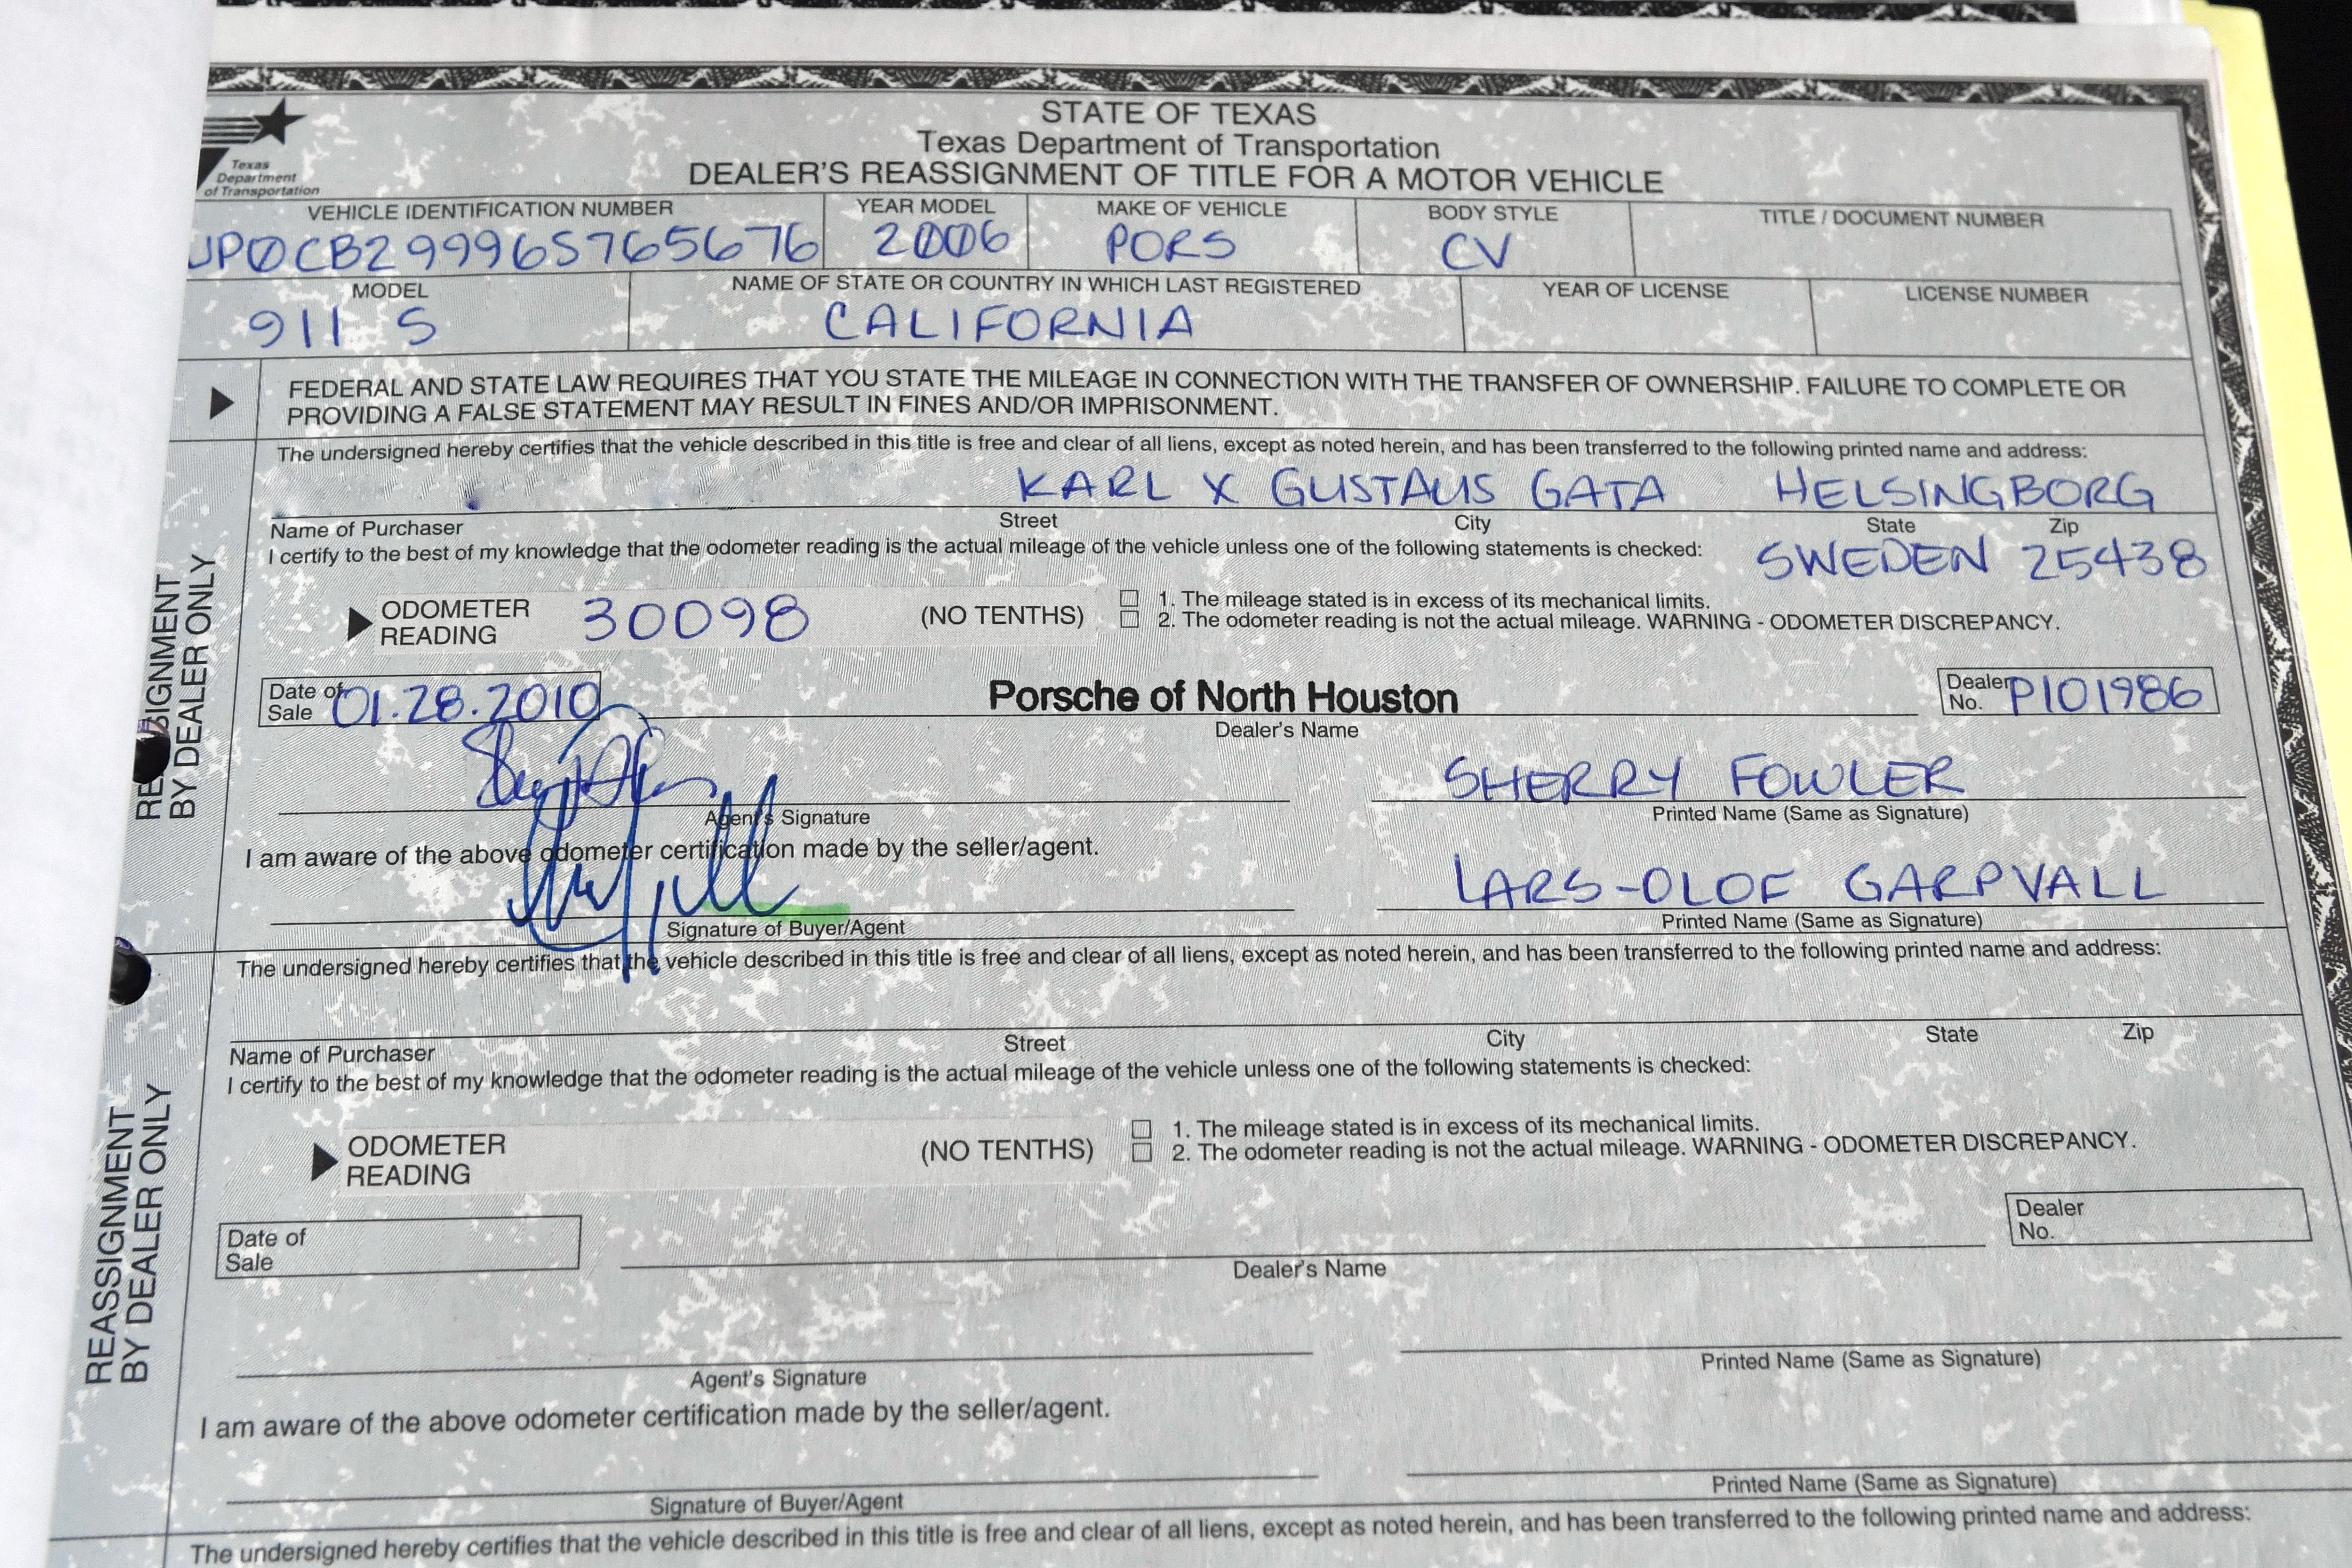 STATE OF TEXAS
Texas Department of Transportation
DEALER'S REASSIGNMENT OF TITLE FOR A MOTOR VEHICLE
Texas
Department
of Transportation
VEHICLE IDENTIFICATION NUMBER YEAR MODEL MAKE OF VEHICLE BODY STYLE TITLE / DOCUMENT NUMBER
WP0CB29996S765676 2006 PORS CV
MODEL NAME OF STATE OR COUNTRY IN WHICH LAST REGISTERED YEAR OF LICENSE LICENSE NUMBER
911 S CALIFORNIA
FEDERAL AND STATE LAW REQUIRES THAT YOU STATE THE MILEAGE IN CONNECTION WITH THE TRANSFER OF OWNERSHIP. FAILURE TO COMPLETE OR
PROVIDING A FALSE STATEMENT MAY RESULT IN FINES AND/OR IMPRISONMENT.
REASSIGNMENT
BY DEALER ONLY
The undersigned hereby certifies that the vehicle described in this title is free and clear of all liens, except as noted herein, and has been transferred to the following printed name and address:
KARL X GUSTAVS GATA HELSINGBORG
Name of Purchaser Street City State Zip
I certify to the best of my knowledge that the odometer reading is the actual mileage of the vehicle unless one of the following statements is checked: SWEDEN 25438
ODOMETER
READING 30098 (NO TENTHS)
1. The mileage stated is in excess of its mechanical limits.
2. The odometer reading is not the actual mileage. WARNING - ODOMETER DISCREPANCY.
Date of
Sale 01.28.2010 Porsche of North Houston Dealer
No. P101986
Dealer's Name
SHERRY FOWLER
Agent's Signature Printed Name (Same as Signature)
I am aware of the above odometer certification made by the seller/agent.
LARS-OLOF GARPVALL
Signature of Buyer/Agent Printed Name (Same as Signature)
REASSIGNMENT
BY DEALER ONLY
The undersigned hereby certifies that the vehicle described in this title is free and clear of all liens, except as noted herein, and has been transferred to the following printed name and address:
Name of Purchaser Street City State Zip
I certify to the best of my knowledge that the odometer reading is the actual mileage of the vehicle unless one of the following statements is checked:
ODOMETER
READING (NO TENTHS)
1. The mileage stated is in excess of its mechanical limits.
2. The odometer reading is not the actual mileage. WARNING - ODOMETER DISCREPANCY.
Date of
Sale Dealer
No.
Dealer's Name
Agent's Signature Printed Name (Same as Signature)
I am aware of the above odometer certification made by the seller/agent.
Signature of Buyer/Agent Printed Name (Same as Signature)
The undersigned hereby certifies that the vehicle described in this title is free and clear of all liens, except as noted herein, and has been transferred to the following printed name and address: